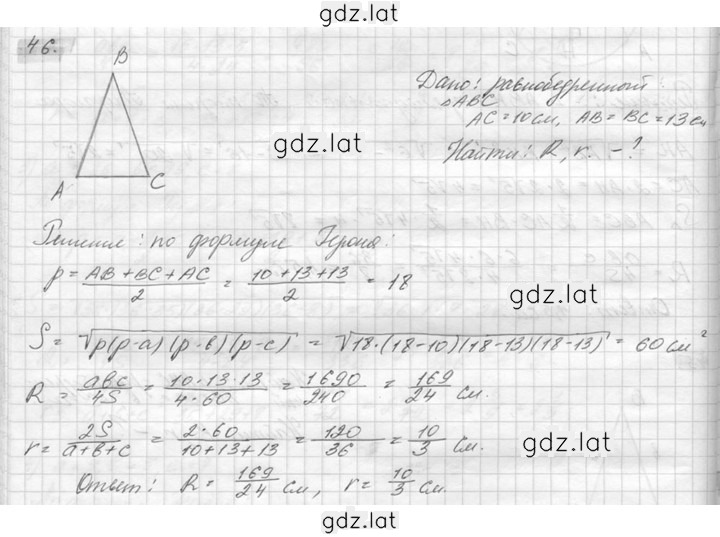 gdz.lat
46.
B
A
C
Дано: равнобедренный
△ABC
AC = 10 см, AB = BC = 13 см
Найти: R, r. - ?
gdz.lat
Решение: по формуле Герона:
p = (AB + BC + AC)/2 = (10 + 13 + 13)/2 = 18
gdz.lat
S = √(p(p-a)(p-в)(p-c)) = √(18·(18-10)(18-13)(18-13)) = 60 см²
R = aвc/4S = (10·13·13)/(4·60) = 1690/240 = 169/24 см.
r = 2S/(a+в+c) = (2·60)/(10+13+13) = 120/36 = 10/3 см.
gdz.lat
Ответ: R = 169/24 см, r = 10/3 см.
gdz.lat